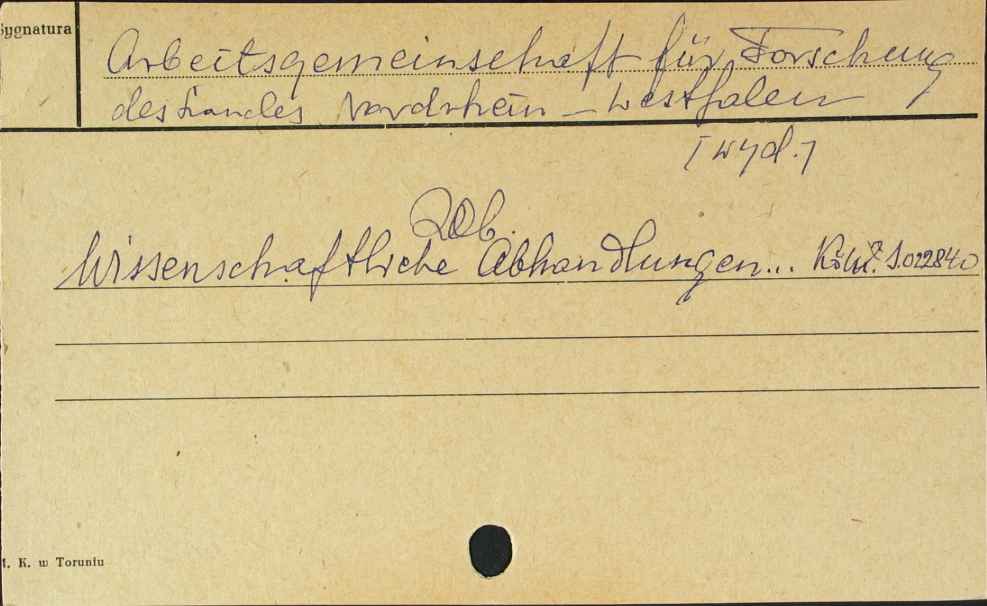 Sygnatura
Arbeitsgemeinschaft für Forschung
des Landes Nordrhein - Westfalen
[wyd.]
Zob.
Wissenschaftliche Abhandlungen... Köln. S.022840
K. w Toruniu